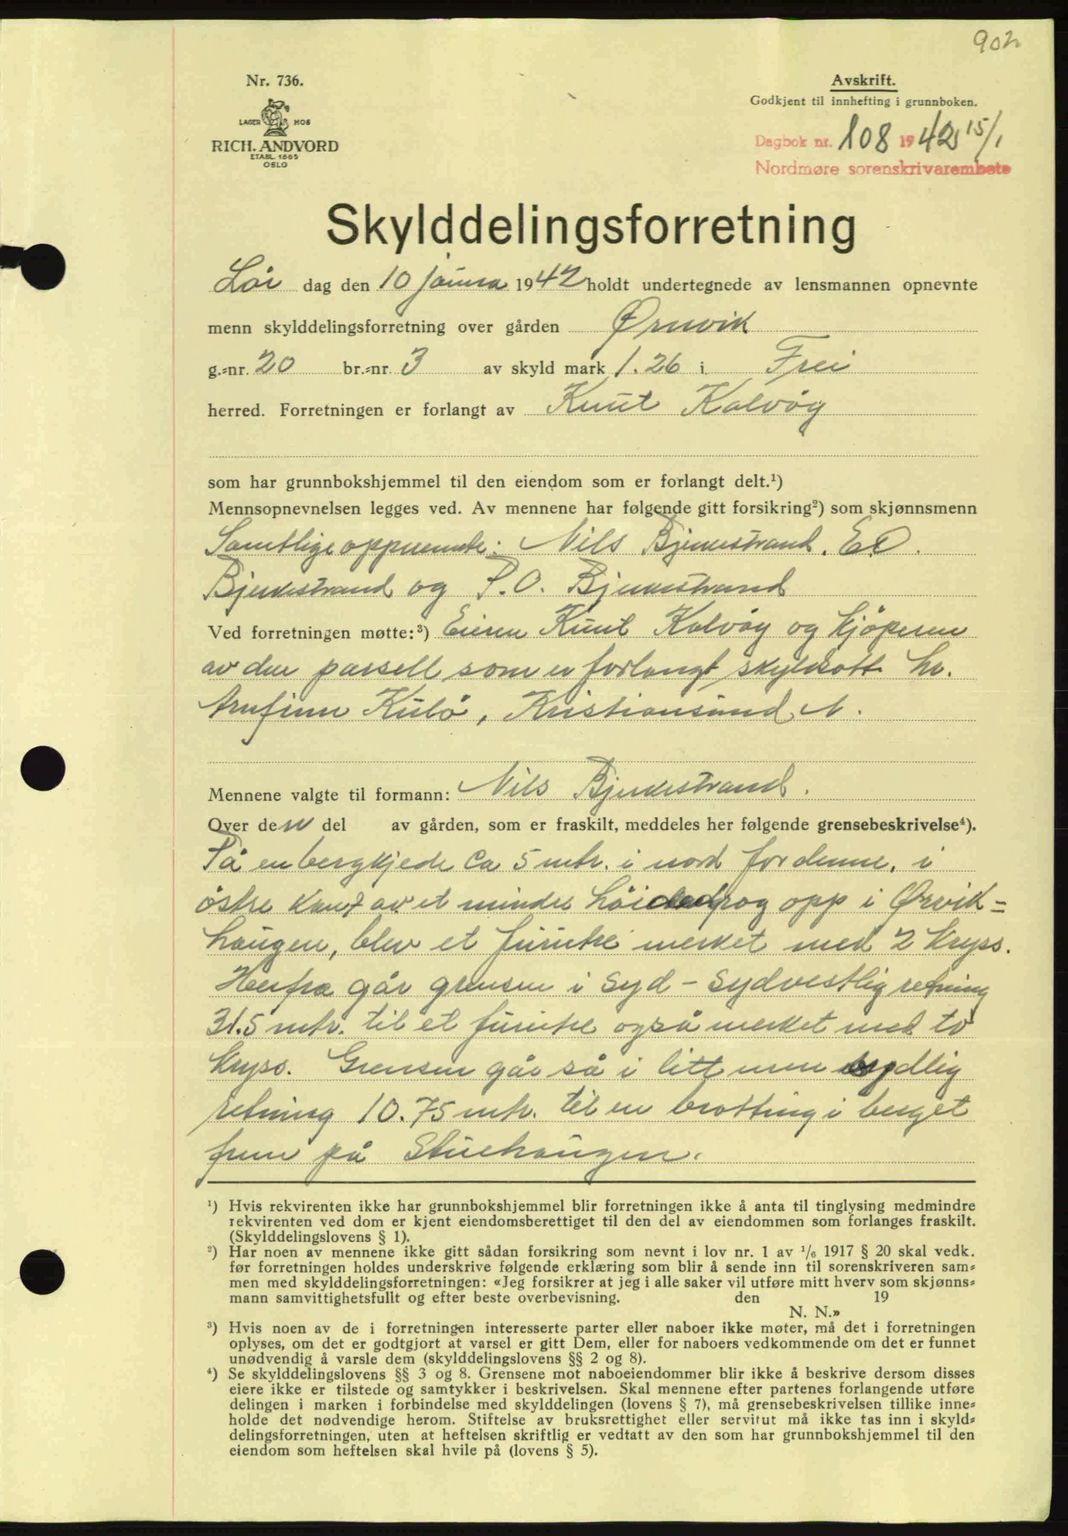 902
Nr. 736.
LAGER HOS
RICH. ANDVORD
ETABL. 1865
OSLO
Avskrift.
Godkjent til innhefting i grunnboken.
Dagbok nr. 108 1942 15/1
Nordmøre sorenskrivarembete
Skylddelingsforretning
Lör dag den 10 janua 1942 holdt undertegnede av lensmannen opnevnte
menn skylddelingsforretning over gården Ørnvik
g.=nr. 20 br.=nr. 3 av skyld mark 1.26 i Frei
herred. Forretningen er forlangt av Knut Kalvøg
som har grunnbokshjemmel til den eiendom som er forlangt delt.¹)
Mennsopnevnelsen legges ved. Av mennene har følgende gitt forsikring²) som skjønnsmenn
Samtlige oppnevnte: Nils Bjerkestrand, E O.
Bjerkestrand og P. O. Bjerkestrand
Ved forretningen møtte:³) Eieren Knut Kalvøg og kjöperen
av den parsell som er forlangt skyldsatt hr.
Arnfinn Kulö, Kristiansund N.
Mennene valgte til formann: Nils Bjerkestrand.
Over den del av gården, som er fraskilt, meddeles her følgende grensebeskrivelse⁴).
På en bergkjede ca 5 mtr. i nord for denne, i
östre kant av et mindre höidedrag opp i Ørvik=
haugen, blev et furutre merket med 2 kryss.
Herfra går grensen i syd - sydvestlig retning
31.5 mtr. til et furutre også merket med to
kryss. Grensen går så i litt mere sydlig
retning 10.75 mtr. til en brotting i berget
frem på Stuehaugen.
¹) Hvis rekvirenten ikke har grunnbokshjemmel blir forretningen ikke å anta til tinglysing medmindre
rekvirenten ved dom er kjent eiendomsberettiget til den del av eiendommen som forlanges fraskilt.
(Skylddelingslovens § 1).
²) Har noen av mennene ikke gitt sådan forsikring som nevnt i lov nr. 1 av 1/6 1917 § 20 skal vedk.
før forretningen holdes underskrive følgende erklæring som blir å sende inn til sorenskriveren sam=
men med skylddelingsforretningen: «Jeg forsikrer at jeg i alle saker vil utføre mitt hverv som skjønns=
mann samvittighetsfullt og efter beste overbevisning. den 19
N. N.»
³) Hvis noen av de i forretningen interesserte parter eller naboer ikke møter, må det i forretningen
oplyses, om det er godtgjort at varsel er gitt Dem, eller for naboers vedkommende om det er funnet
unødvendig å varsle dem (skylddelingslovens §§ 2 og 8).
⁴) Se skylddelingslovens §§ 3 og 8. Grensene mot naboeiendommer blir ikke å beskrive dersom disses
eiere ikke er tilstede og samtykker i beskrivelsen. Skal mennene efter partenes forlangende utføre
delingen i marken i forbindelse med skylddelingen (lovens § 7), må grensebeskrivelsen tillike inne=
holde det nødvendige herom. Stiftelse av bruksrettighet eller servitut må ikke tas inn i skyld=
delingsforretningen, uten at heftelsen skriftlig er vedtatt av den som har grunnbokshjemmel til den
eiendom som heftelsen skal hvile på (lovens § 5).